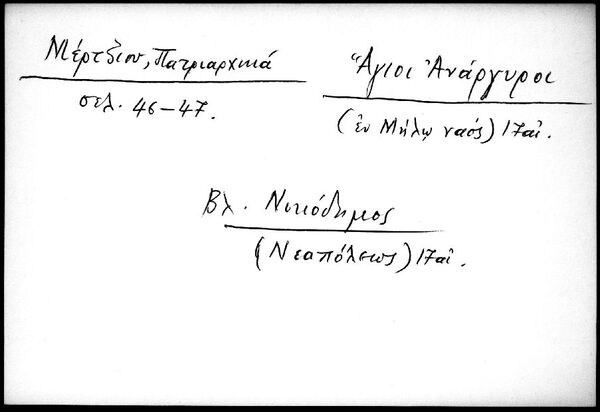 Μέρτζιου, Πατριαρχικά
σελ. 46–47.
Ἅγιοι Ἀνάργυροι
(ἐν Μήλῳ ναός) 17αἰ.
Βλ. Νικόδημος
(Νεαπόλεως) 17αἰ.